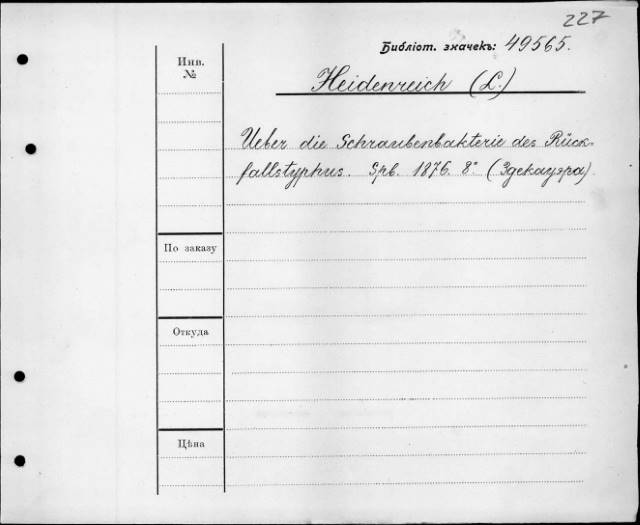 227
Библіот. значекъ: 49565.
Инв.
№
Heidenreich (L.)
Ueber die Schraubenbakterie des Rück-
fallstyphus. Spb. 1876. 8° (Здекауэра).
По заказу
Откуда
Цѣна